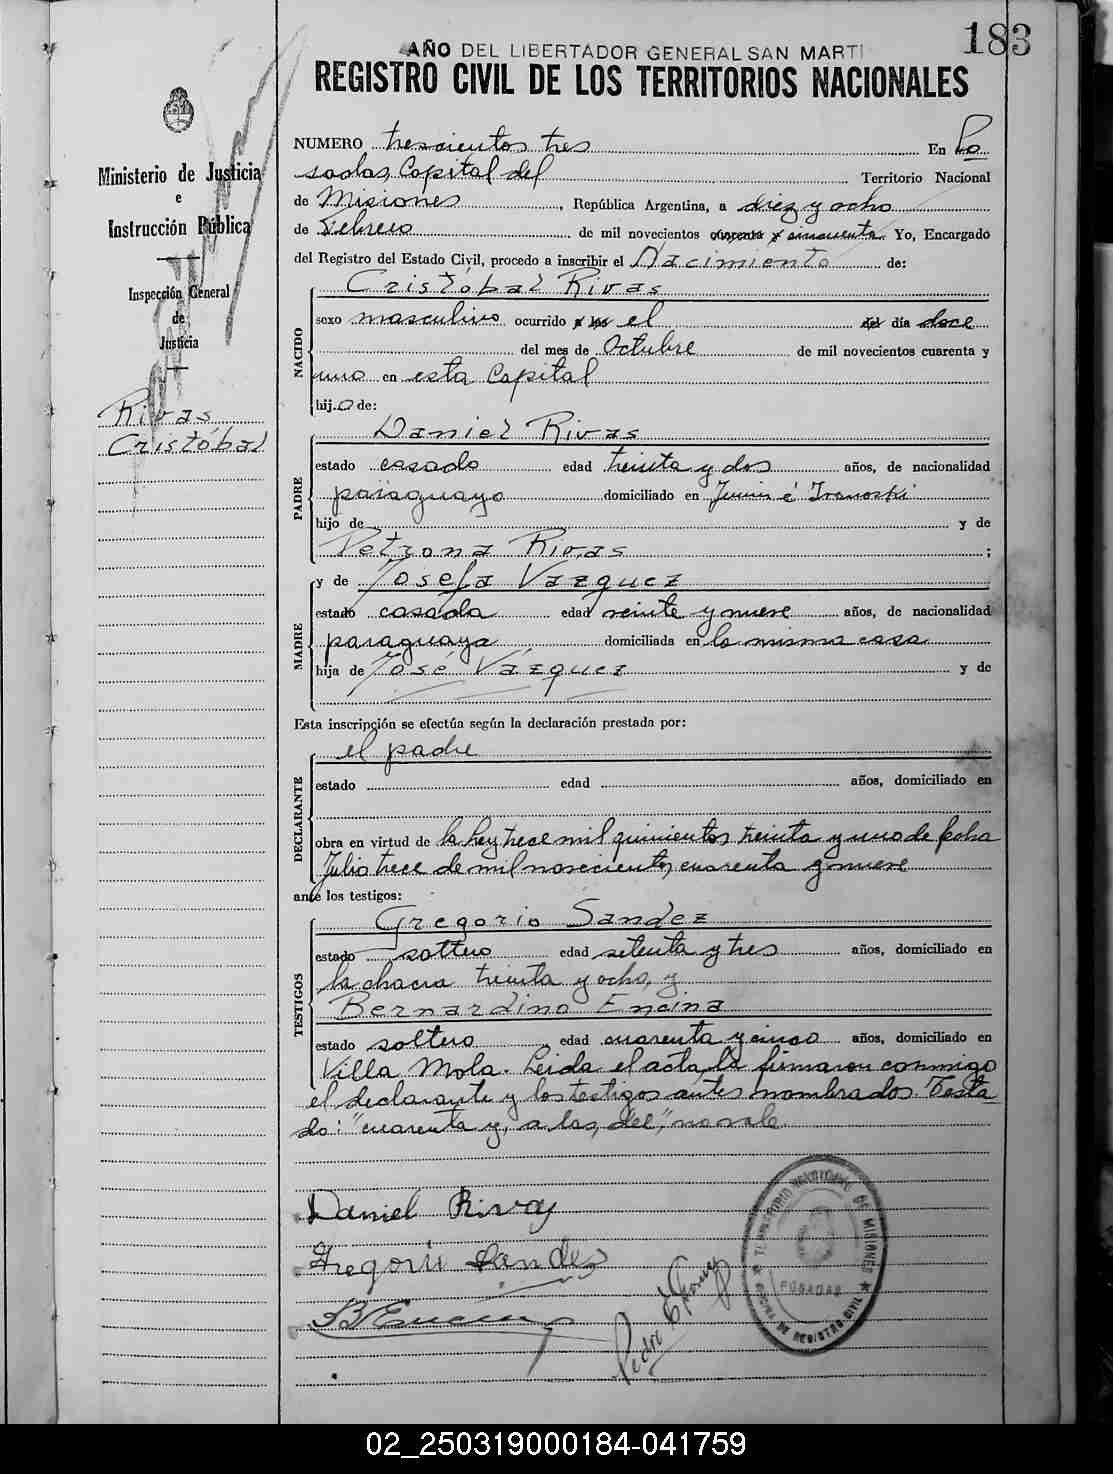 183
AÑO DEL LIBERTADOR GENERAL SAN MARTI
REGISTRO CIVIL DE LOS TERRITORIOS NACIONALES
Ministerio de Justicia
e
Instrucción Pública
Inspección General
de
Justicia
Rivas
Cristóbal
NUMERO trescientos tres En Po
sadas, Capital del Territorio Nacional
de Misiones, República Argentina, a diez y ocho
de Febrero de mil novecientos cuarenta y cincuenta. Yo, Encargado
del Registro del Estado Civil, procedo a inscribir el Nacimiento de:
NACIDO
Cristóbal Rivas
sexo masculino ocurrido a las el del día doce
del mes de Octubre de mil novecientos cuarenta y
uno en esta Capital
hijo de:
PADRE
Daniel Rivas
estado casado edad treinta y dos años, de nacionalidad
paraguayo domiciliado en Junin é
hijo de y de
Petrona Rivas ;
MADRE
y de Josefa Vazquez
estado casada edad veinte y nueve años, de nacionalidad
paraguaya domiciliada en la misma casa
hija de José Vázquez y de
Esta inscripción se efectúa según la declaración prestada por:
DECLARANTE
el padre
estado edad años, domiciliado en
obra en virtud de la Ley trece mil quinientos treinta y uno de fecha
Julio trece de mil novecientos cuarenta y nueve
ante los testigos:
TESTIGOS
Gregorio Sandez
estado soltero edad setenta y tres años, domiciliado en
la chacra treinta y ocho, y
Bernardino Encina
estado soltero edad cuarenta y cinco años, domiciliado en
Villa Mola. Leida el acta, la firmaron conmigo
el declarante y los testigos antes nombrados. Testa
do: "cuarenta y, a las, del", no vale.
Daniel Rivas
Gregorio Sandez
B Encina
Pedro E
TERRITORIO NACIONAL DE MISIONES
POSADAS
OFICINA DE REGISTRO CIVIL
02_250319000184-041759